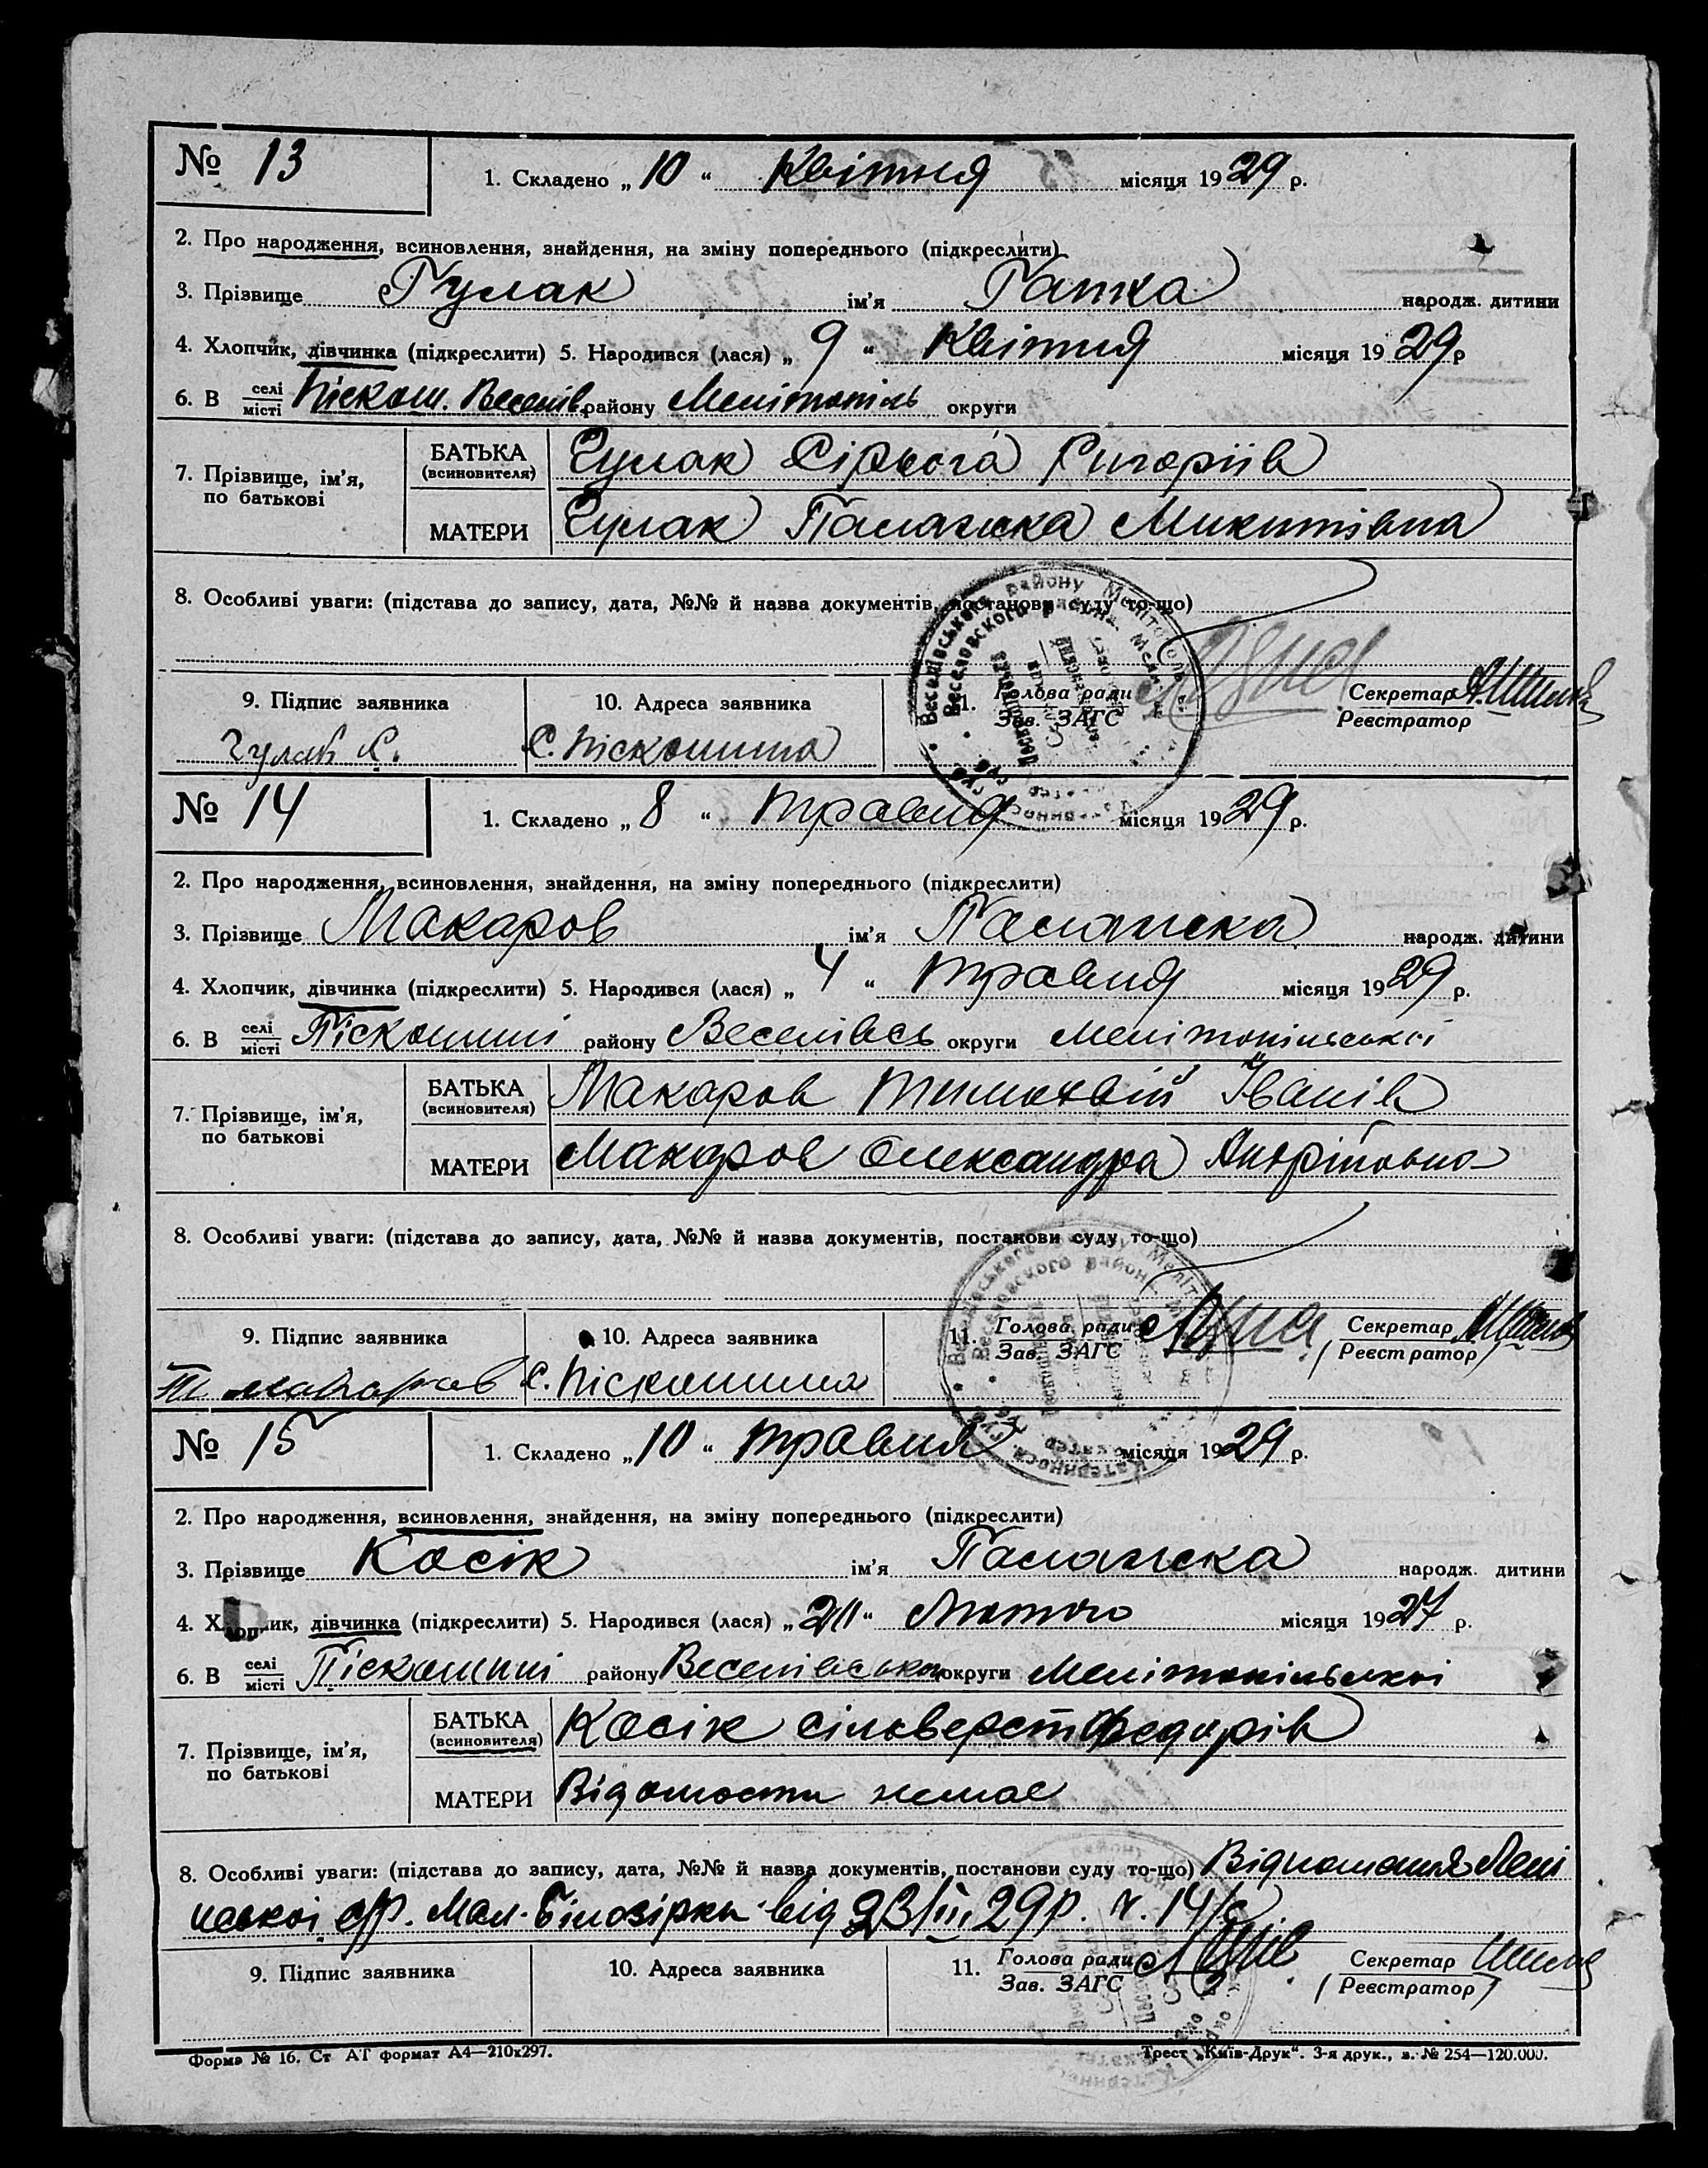 № 13
1. Складено „ 10 “ Квітня місяця 1929 р.
2. Про народження, всиновлення, знайдення, на зміну попереднього (підкреслити)
3. Прізвище Гулак ім'я Гапка народж. дитини
4. Хлопчик, дівчинка (підкреслити) 5. Народився (лася) „ 9 “ Квітня місяця 1929 р
6. В селі місті Піскош. Веселів. району Мелітопіль округи
7. Прізвище, ім'я, по батькові
БАТЬКА (всиновителя) Гулак Сірьога Григоріів
МАТЕРИ Гулак Палажка Микитівна
8. Особливі уваги: (підстава до запису, дата, №№ й назва документів, постанови суду то-що)
9. Підпис заявника 10. Адреса заявника 11. Голова ради Секретар
Зав. ЗАГС Реєстратор
Гулак С. С. Піскошина
№ 14
1. Складено „ 8 “ травня місяця 1929 р.
2. Про народження, всиновлення, знайдення, на зміну попереднього (підкреслити)
3. Прізвище Макаров ім'я Палажка народж. дитини
4. Хлопчик, дівчинка (підкреслити) 5. Народився (лася) „ 4 “ травня місяця 1929 р.
6. В селі місті Піскошині району Веселівсь округи Мелітопільськоі
7. Прізвище, ім'я, по батькові
БАТЬКА (всиновителя) Макаров Тимохвій Іванів
МАТЕРИ Макаров Олександра Андріївна
8. Особливі уваги: (підстава до запису, дата, №№ й назва документів, постанови суду то-що)
9. Підпис заявника 10. Адреса заявника 11. Голова ради Секретар
Зав. ЗАГС Реєстратор
Т Макаров С. Піскошина
№ 15
1. Складено „ 10 “ травня місяця 1929 р.
2. Про народження, всиновлення, знайдення, на зміну попереднього (підкреслити)
3. Прізвище Косік ім'я Палажка народж. дитини
4. Хлопчик, дівчинка (підкреслити) 5. Народився (лася) „ “ Лютого місяця 1927 р.
6. В селі місті Піскошині району Веселівського округи Мелітопільськоі
7. Прізвище, ім'я, по батькові
БАТЬКА (всиновителя) Косік Сільверст Федорів
МАТЕРИ Відомости немає
8. Особливі уваги: (підстава до запису, дата, №№ й назва документів, постанови суду то-що) Відношення Лені
нськоі с/р. Мал. Білозірки від 23/III 29р. ч. 14/с
9. Підпис заявника 10. Адреса заявника 11. Голова ради Секретар
Зав. ЗАГС Реєстратор
Форма № 16. Ст АГ формат А4—210х297. Трест „Київ-Друк“. 3-я друк., з. № 254—120.000.